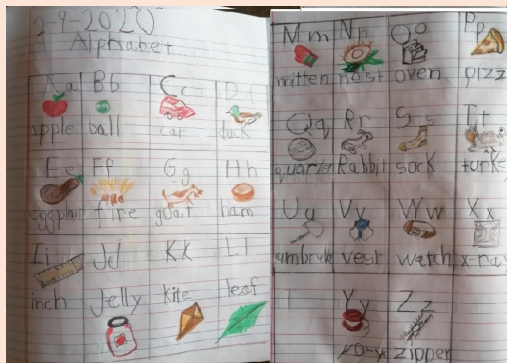 2-4-2020
Alphabet
Aa Bb Cc Dd
apple ball car duck
Ee Ff Gg Hh
eggplant fire goat ham
Ii Jj Kk Ll
inch Jelly kite leaf
Mm Nn Oo Pp
mitten nest oven pizz
Qq Rr Ss Tt
quarter Rabbit sock turke
Uu Vv Ww Xx
umbrella vest watch x-ray
Yy Zz
yo-yo zipper